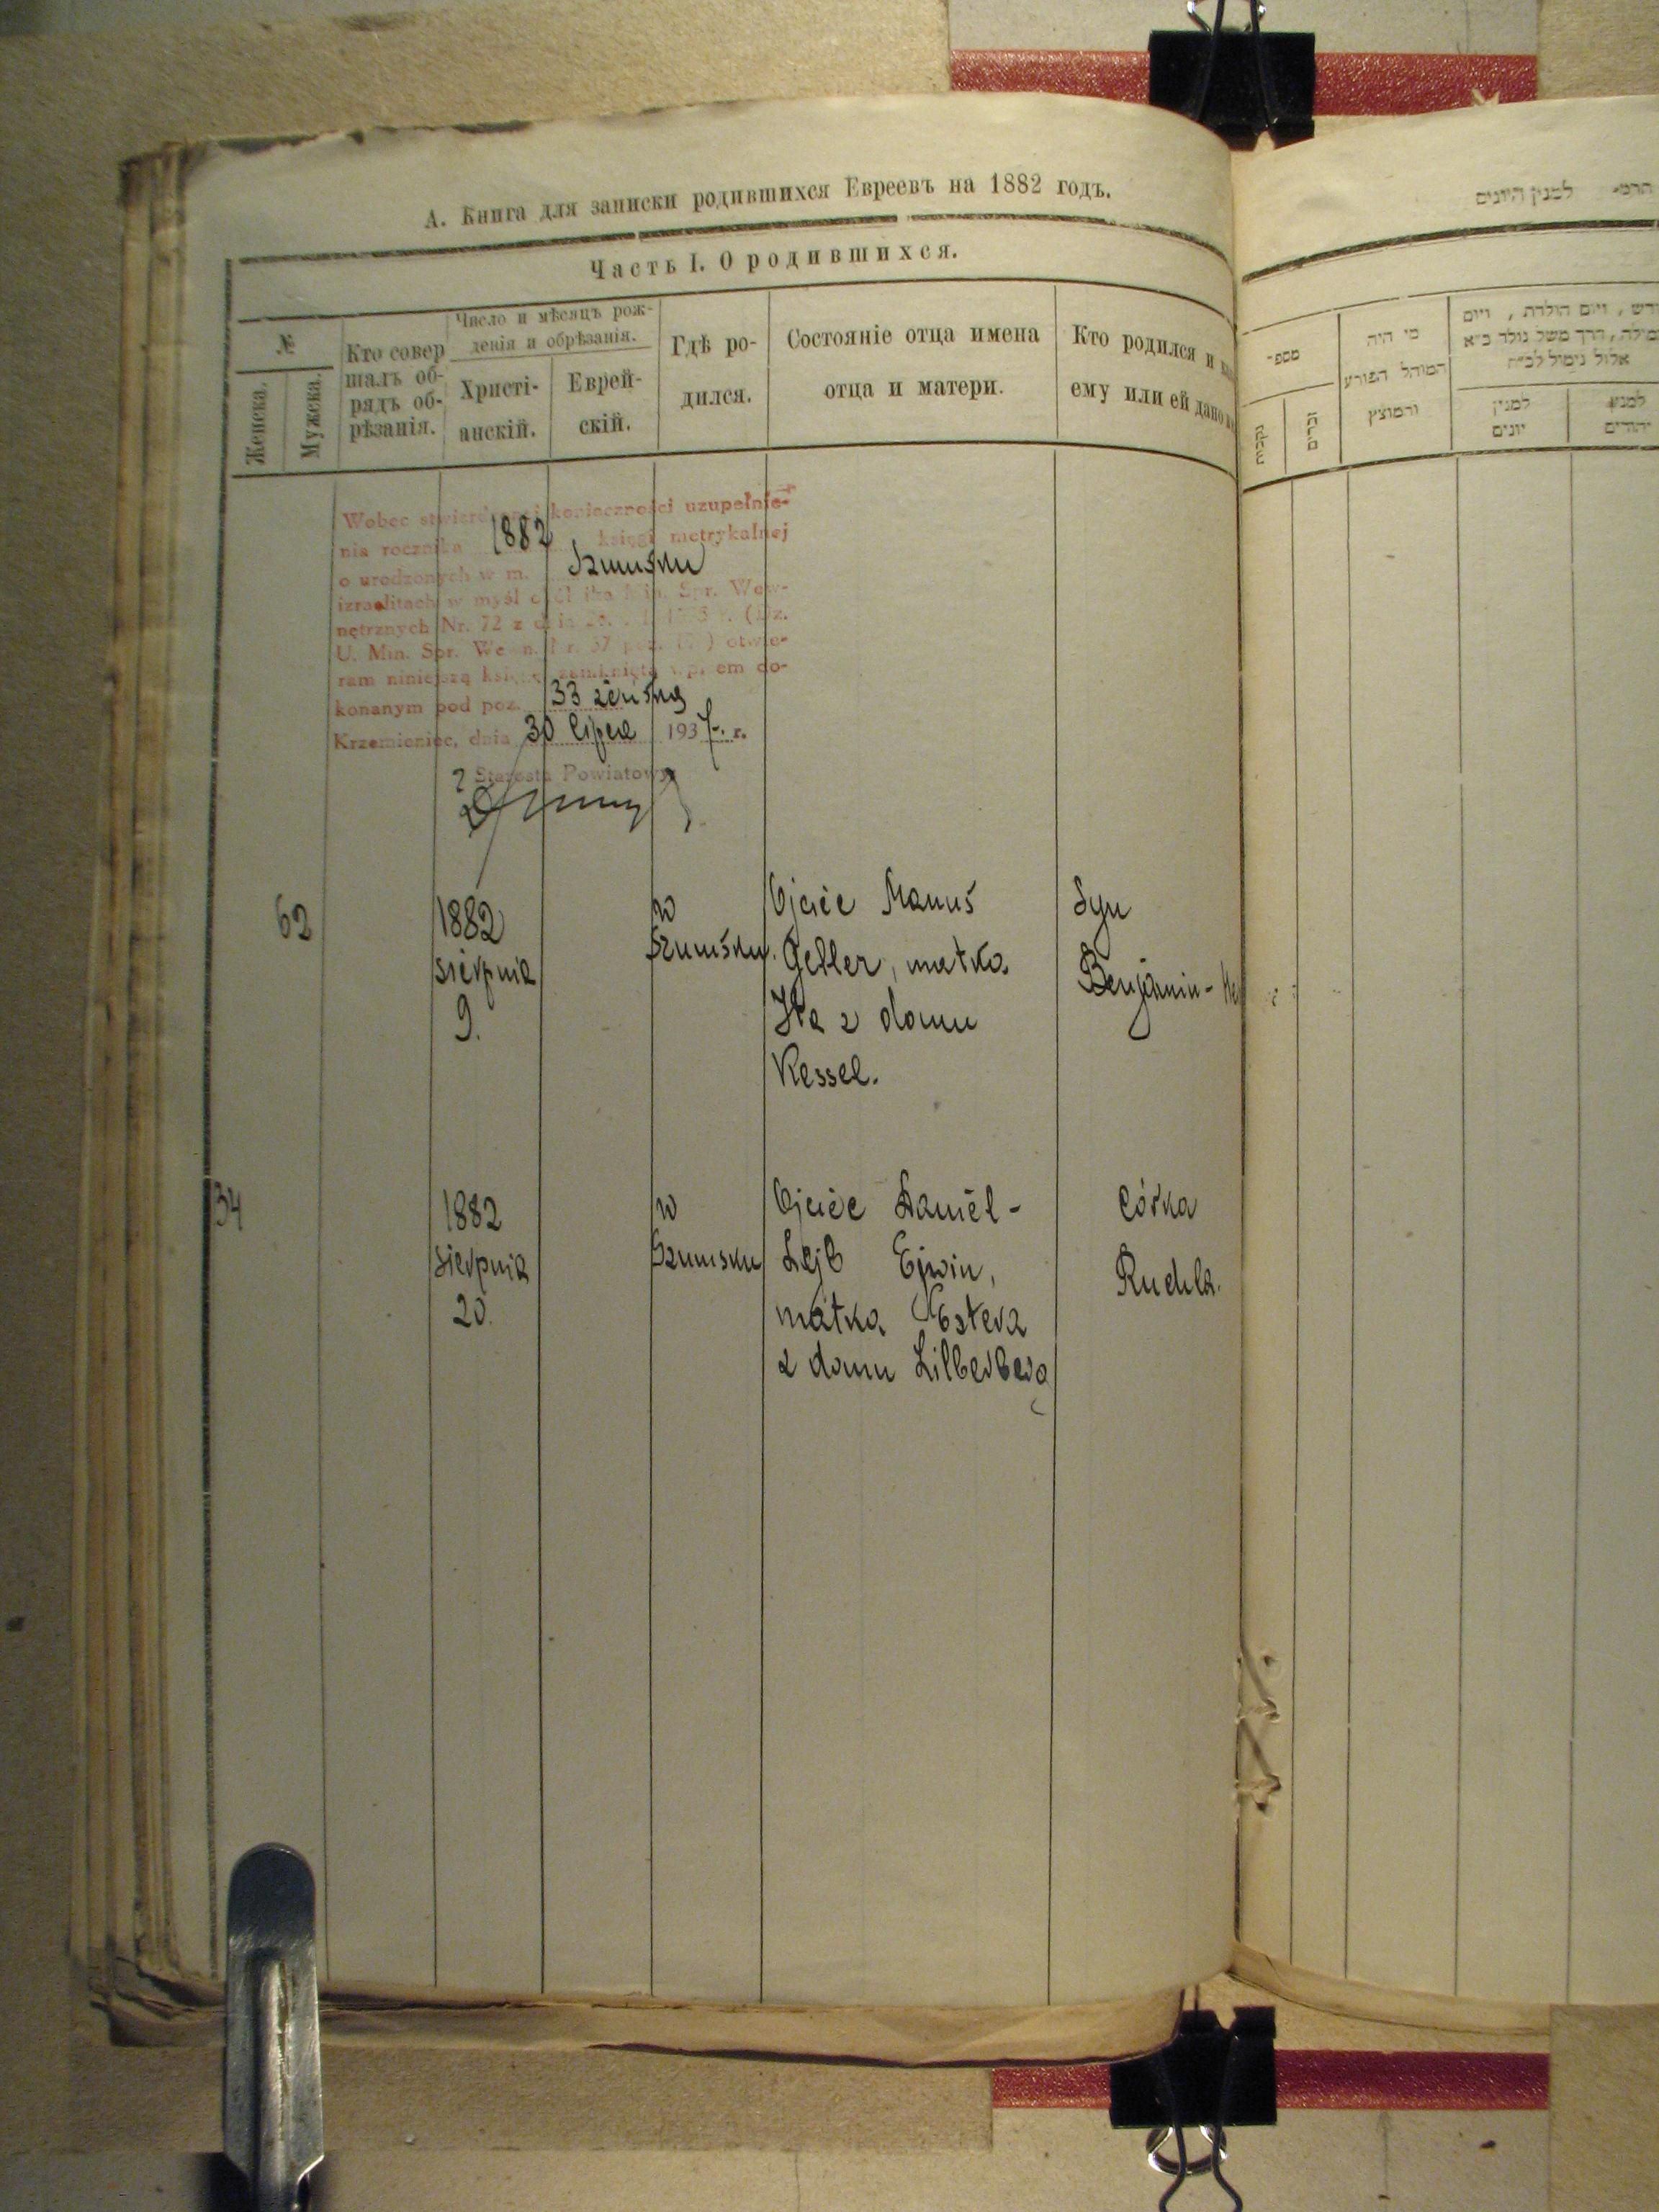 А. Книга для записки родившихся Евреевъ на 1882 годъ.
Часть I. О родившихся.
№
Женска.
Мужска.
Кто совер
шалъ об-
рядъ об-
рѣзанія.
Число и мѣсяцъ рож-
денія и обрѣзанія.
Христі-
анскій.
Еврей-
скій.
Гдѣ ро-
дился.
Состояніе отца имена
отца и матери.
Кто родился и
ему или ей дано
Wobec stwierdzonej konieczności uzupełnie-
nia rocznika 1882 księgi metrykalnej
o urodzonych w m. Szumsku
izraelitach w myśl Min. Spr. Wew-
nętrznych Nr. 72 z dnia
U. Min. Spr. Wewn. Nr. 37 poz. ) otwie-
ram niniejszą księgę zamkniętą wpisem do-
konanym pod poz. 33 żeńską
Krzemieniec, dnia 30 lipca 1937. r.
Starosta Powiatowy
62
1882
sierpnia
9.
w
Szumsku.
Ojciec Manuś
Geller, matka
z domu
Kessel.
Syn
Benjamin-
34
1882
sierpnia
20.
w
Szumsku
Ojciec Daniel-
Lejb Ejwin,
matka Estera
z domu Lilberberg
Córka
Ruchla.
למנין היונים
מספ-
נקבות
זכרים
מי היה
המוהל הפורע
והמוצץ
ויום הולדת , ויום
דרך משל נולד כ״א
אלול נימול לכ״ח
למנין
יונים
למנין
יהודים